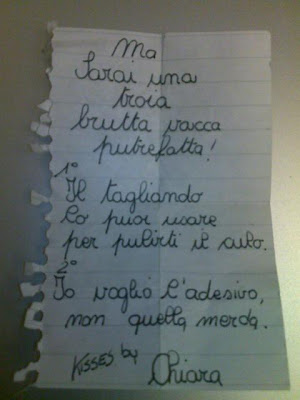 Ma
Sarai una
troia
brutta vacca
putrefatta!
1°
Il tagliando
Lo puoi usare
per pulirti il culo.
2°
Io voglio l'adesivo,
non quella merda.
Kisses by Chiara